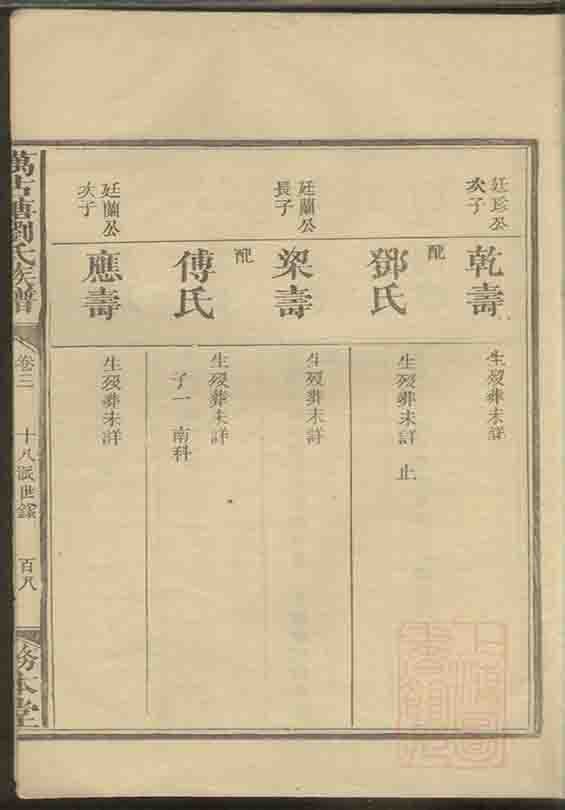 廷珍公
次子
乾壽
生歿葬未詳
配
鄧氏
生歿葬未詳 止
廷蘭公
長子
梁壽
生歿葬未詳
配
傅氏
生歿葬未詳
子一 南科
廷蘭公
次子
應壽
生歿葬未詳
萬古塘劉氏族譜
卷三
十八派世錄
百八
務本堂